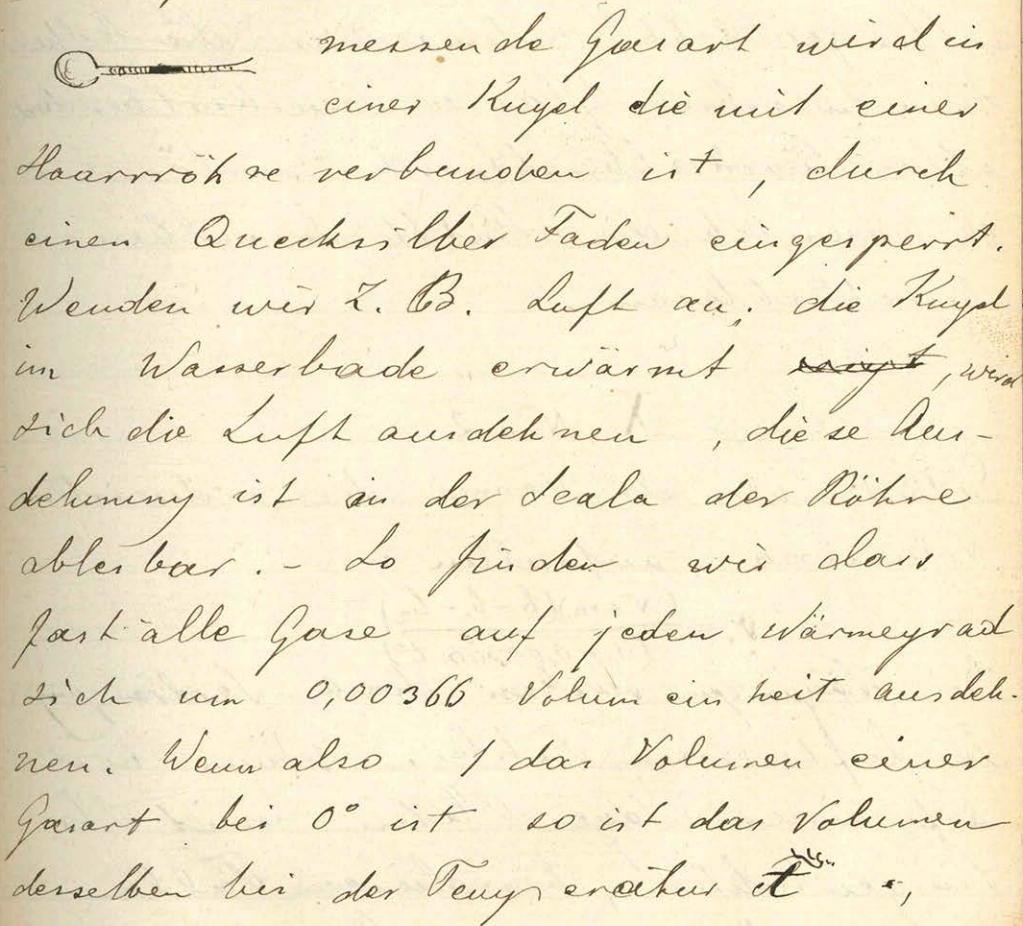 messende Gasart wird in
einer Kugel die mit einer
Haarrröhre verbunden ist, durch
einen Quecksilber Faden eingesperrt.
Wenden wir Z. B. Luft an, die Kugel
im Wasserbade erwärmt, wird
sich die Luft ausdehnen, diese Aus-
dehnung ist in der Scala der Röhre
ablesbar. - So finden wir dass
fast alle Gase auf jeden Wärmegrad
sich um 0,00366 Volumeinheit ausdeh-
nen. Wenn also 1 das Volumen einer
Gasart bei 0° ist so ist das Volumen
desselben bei der Temperatur t,